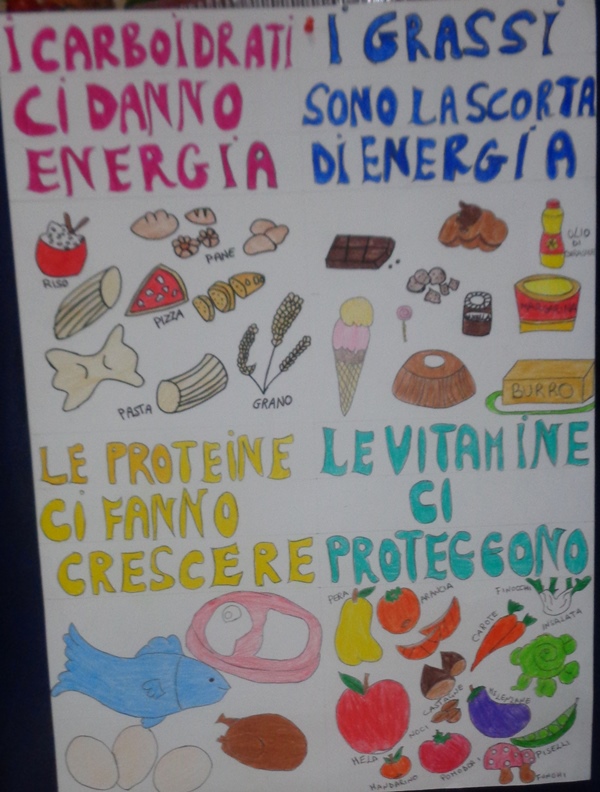 I CARBOIDRATI
CI DANNO
ENERGIA
I GRASSI
SONO LA SCORTA
DI ENERGIA
RISO
PANE
PIZZA
PASTA
GRANO
OLIO
DI
BURRO
LE PROTEINE
CI FANNO
CRESCERE
LE VITAMINE
CI
PROTEGGONO
PERA
ARANCIA
FINOCCHI
CAROTE
INSALATA
CASTAGNE
MELENZANE
NOCI
MELA
PISELLI
MANDARINO
POMODORI
FUNGHI